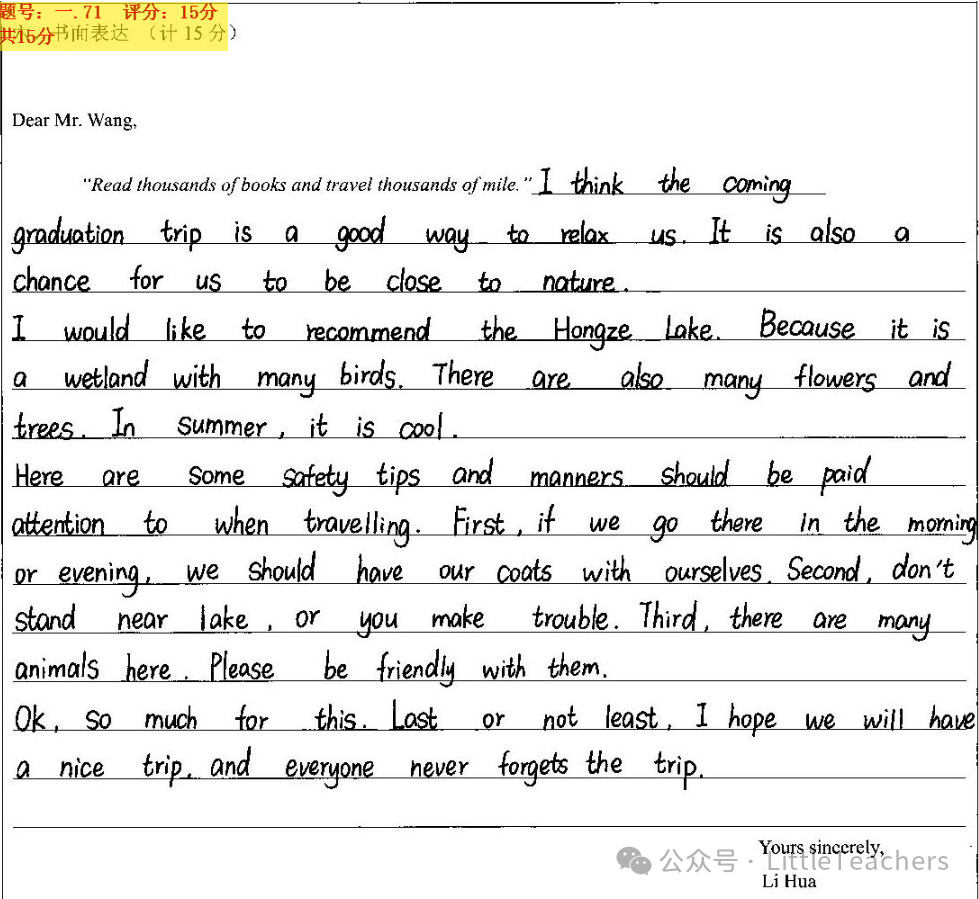 题号：一.71 评分：15分
共15分 书面表达 （计 15 分）
Dear Mr. Wang,
"Read thousands of books and travel thousands of mile." I think the coming
graduation trip is a good way to relax us. It is also a
chance for us to be close to nature.
I would like to recommend the Hongze Lake. Because it is
a wetland with many birds. There are also many flowers and
trees. In summer, it is cool.
Here are some safety tips and manners should be paid
attention to when travelling. First, if we go there in the morning
or evening, we should have our coats with ourselves. Second, don't
stand near lake, or you make trouble. Third, there are many
animals here. Please be friendly with them.
Ok, so much for this. Last or not least, I hope we will have
a nice trip. and everyone never forgets the trip.
Yours sincerely,
公众号·LittleTeachers
Li Hua